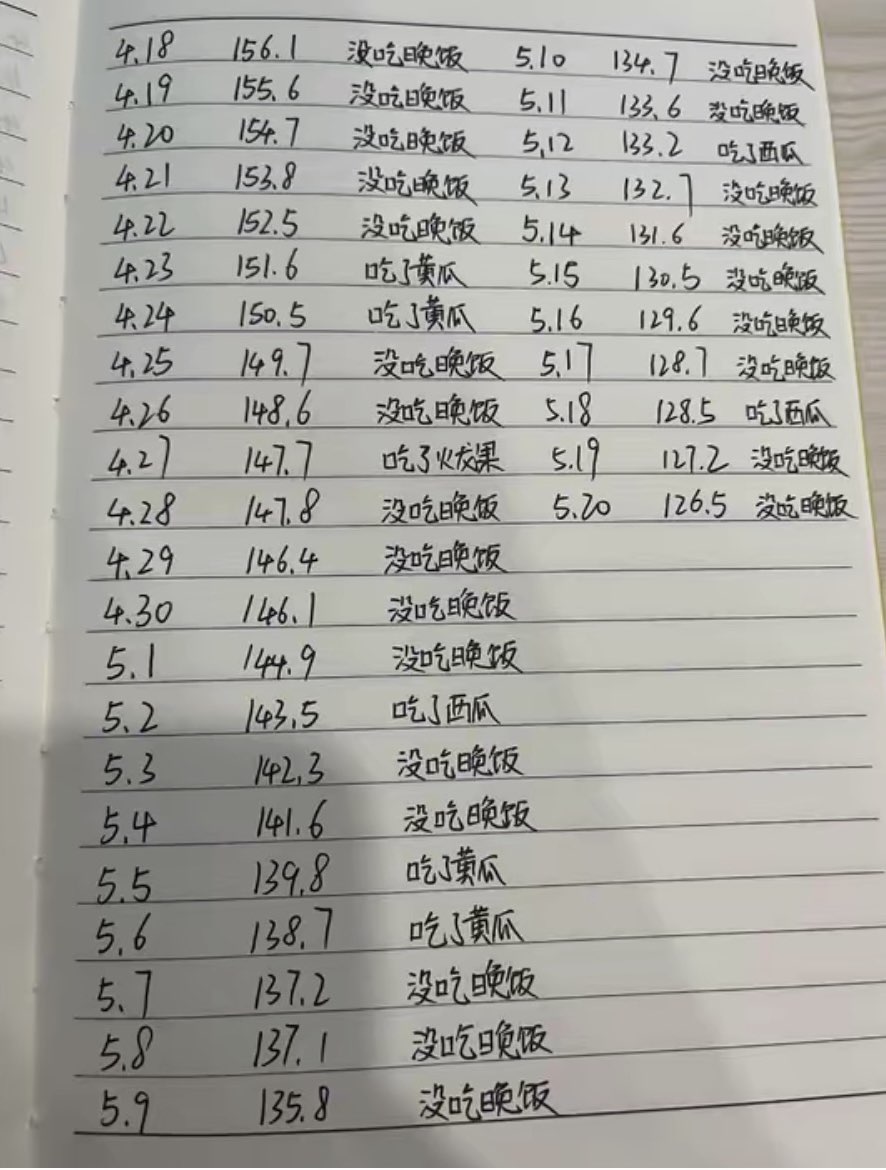 4.18 156.1 没吃晚饭 5.10 134.7 没吃晚饭
4.19 155.6 没吃晚饭 5.11 133.6 没吃晚饭
4.20 154.7 没吃晚饭 5.12 133.2 吃了西瓜
4.21 153.8 没吃晚饭 5.13 132.7 没吃晚饭
4.22 152.5 没吃晚饭 5.14 131.6 没吃晚饭
4.23 151.6 吃了黄瓜 5.15 130.5 没吃晚饭
4.24 150.5 吃了黄瓜 5.16 129.6 没吃晚饭
4.25 149.7 没吃晚饭 5.17 128.7 没吃晚饭
4.26 148.6 没吃晚饭 5.18 128.5 吃了西瓜
4.27 147.7 吃了火龙果 5.19 127.2 没吃晚饭
4.28 147.8 没吃晚饭 5.20 126.5 没吃晚饭
4.29 146.4 没吃晚饭
4.30 146.1 没吃晚饭
5.1 144.9 没吃晚饭
5.2 143.5 吃了西瓜
5.3 142.3 没吃晚饭
5.4 141.6 没吃晚饭
5.5 139.8 吃了黄瓜
5.6 138.7 吃了黄瓜
5.7 137.2 没吃晚饭
5.8 137.1 没吃晚饭
5.9 135.8 没吃晚饭